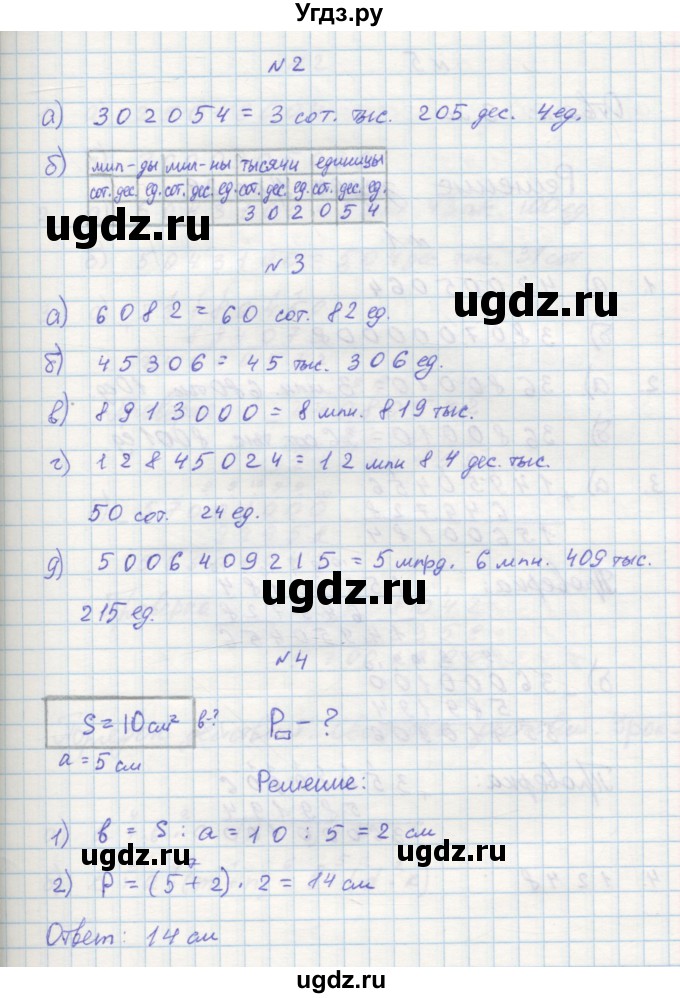 Угдз.ру
№ 2
а) 302054 = 3 сот. тыс. 205 дес. 4 ед.
б) мил-ды мил-ны тысячи единицы
сот. дес. ед. сот. дес. ед. сот. дес. ед. сот. дес. ед.
3 0 2 0 5 4
ugdz.ru
№ 3
ugdz.ru
а) 6082 = 60 сот. 82 ед.
б) 45306 = 45 тыс. 306 ед.
в) 8913000 = 8 млн. 819 тыс.
г) 12845024 = 12 млн 84 дес. тыс.
50 сот. 24 ед.
д) 5006409215 = 5 млрд. 6 млн. 409 тыс.
ugdz.ru
215 ед.
№ 4
S = 10 см² b-? P▭ - ?
a = 5 см
Решение:
1) b = S : a = 10 : 5 = 2 см
ugdz.ru ugdz.ru
2) P = (5 + 2) · 2 = 14 см
Ответ: 14 см
ugdz.ru